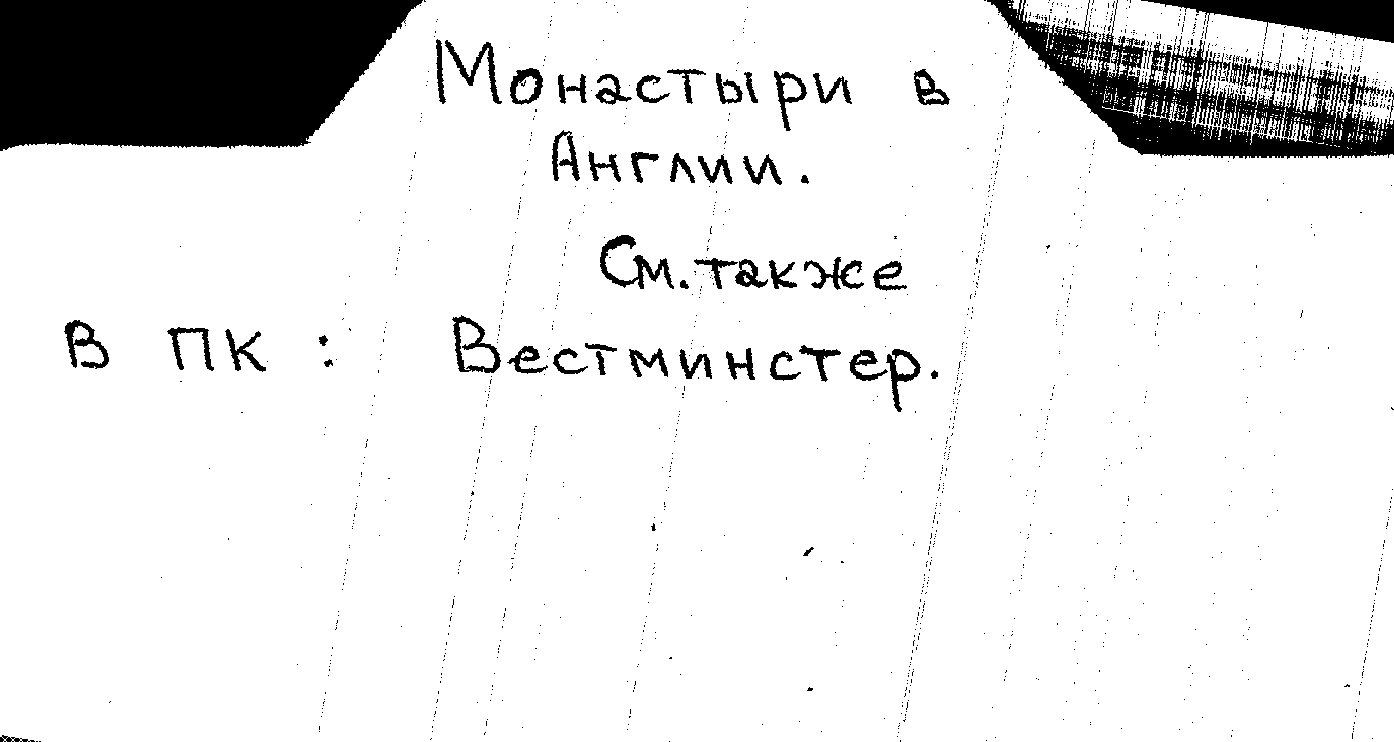 Монастыри в
Англии.
См. также
В ПК: Вестминстер.